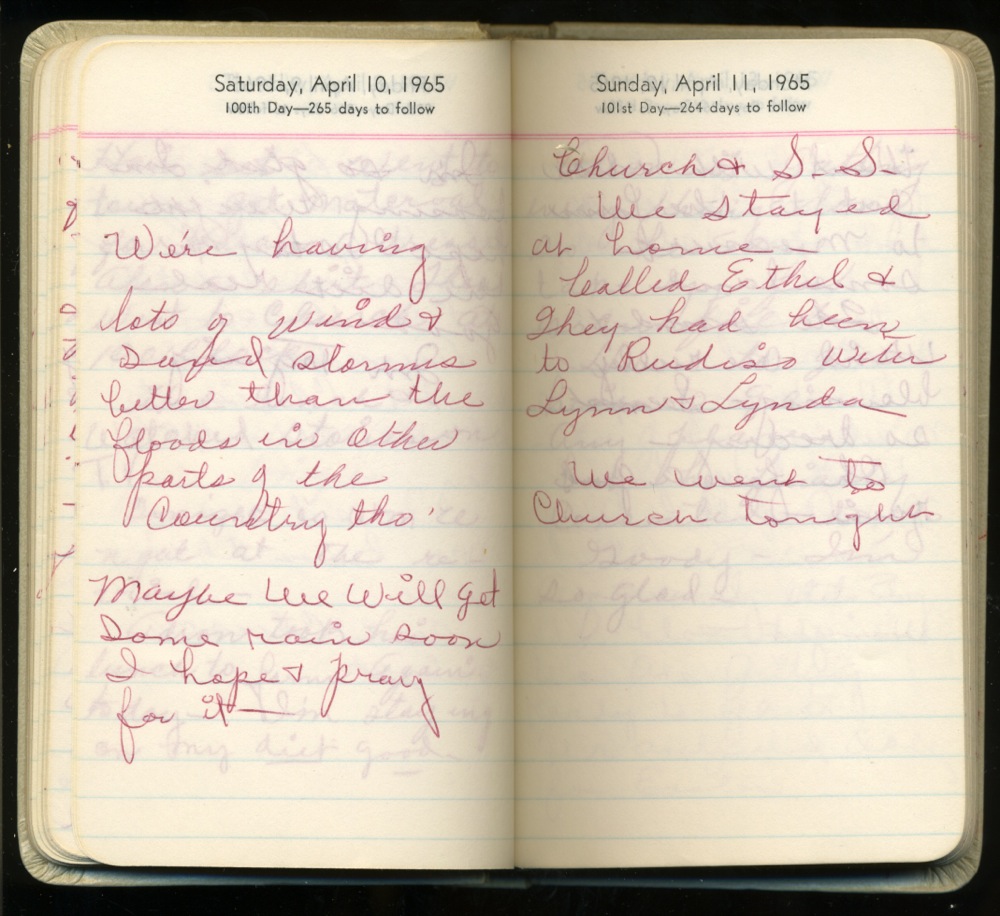 Saturday, April 10, 1965
100th Day—265 days to follow
We're having
lots of wind &
Sand storms
better than the
floods in other
parts of the
Country tho'
Maybe we will get
some rain soon
I hope & pray
for it —
Sunday, April 11, 1965
101st Day—264 days to follow
Church & S. S.
We stayed
at home —
Called Ethel &
They had been
to Rudiso with
Lynn & Lynda
We went to
Church tonight